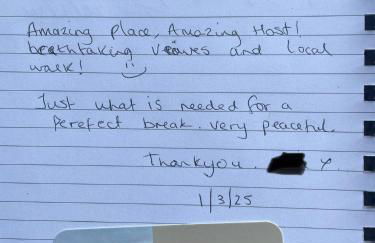 Amazing place, Amazing Host!
breathtaking views and local
walk!
Just what is needed for a
perefect break. very peaceful.
Thankyou.
1/3/25